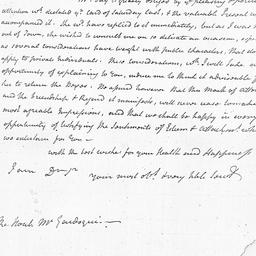 attention wch. dictated yr. Card of Saturday last, & the valuable Present wch.
accompanied it. She wd. have replied to it immediately, but as I was
out of Town, she wished to consult me on so delicate an occasion,
as several considerations have weight with public characters, that do
apply to private Individuals. These considerations, wh. I will take
opportunity of explaining to you, induce me to think it adviseable for
her to return the Boxes. Be assured however that this Mark of atten
and the Friendship & Regard it manifests, will never cease to make
most agreable Impressions, and that we shall be happy in every
opportunity of testifying the Sentiments of Esteem & Attachmt. wth
we entertain for You—
with the best wishes for your Health and Happiness
I am Dr. Sr.
your most obt. & very hble Servt.
The Honb. Mr Gardoqui.—